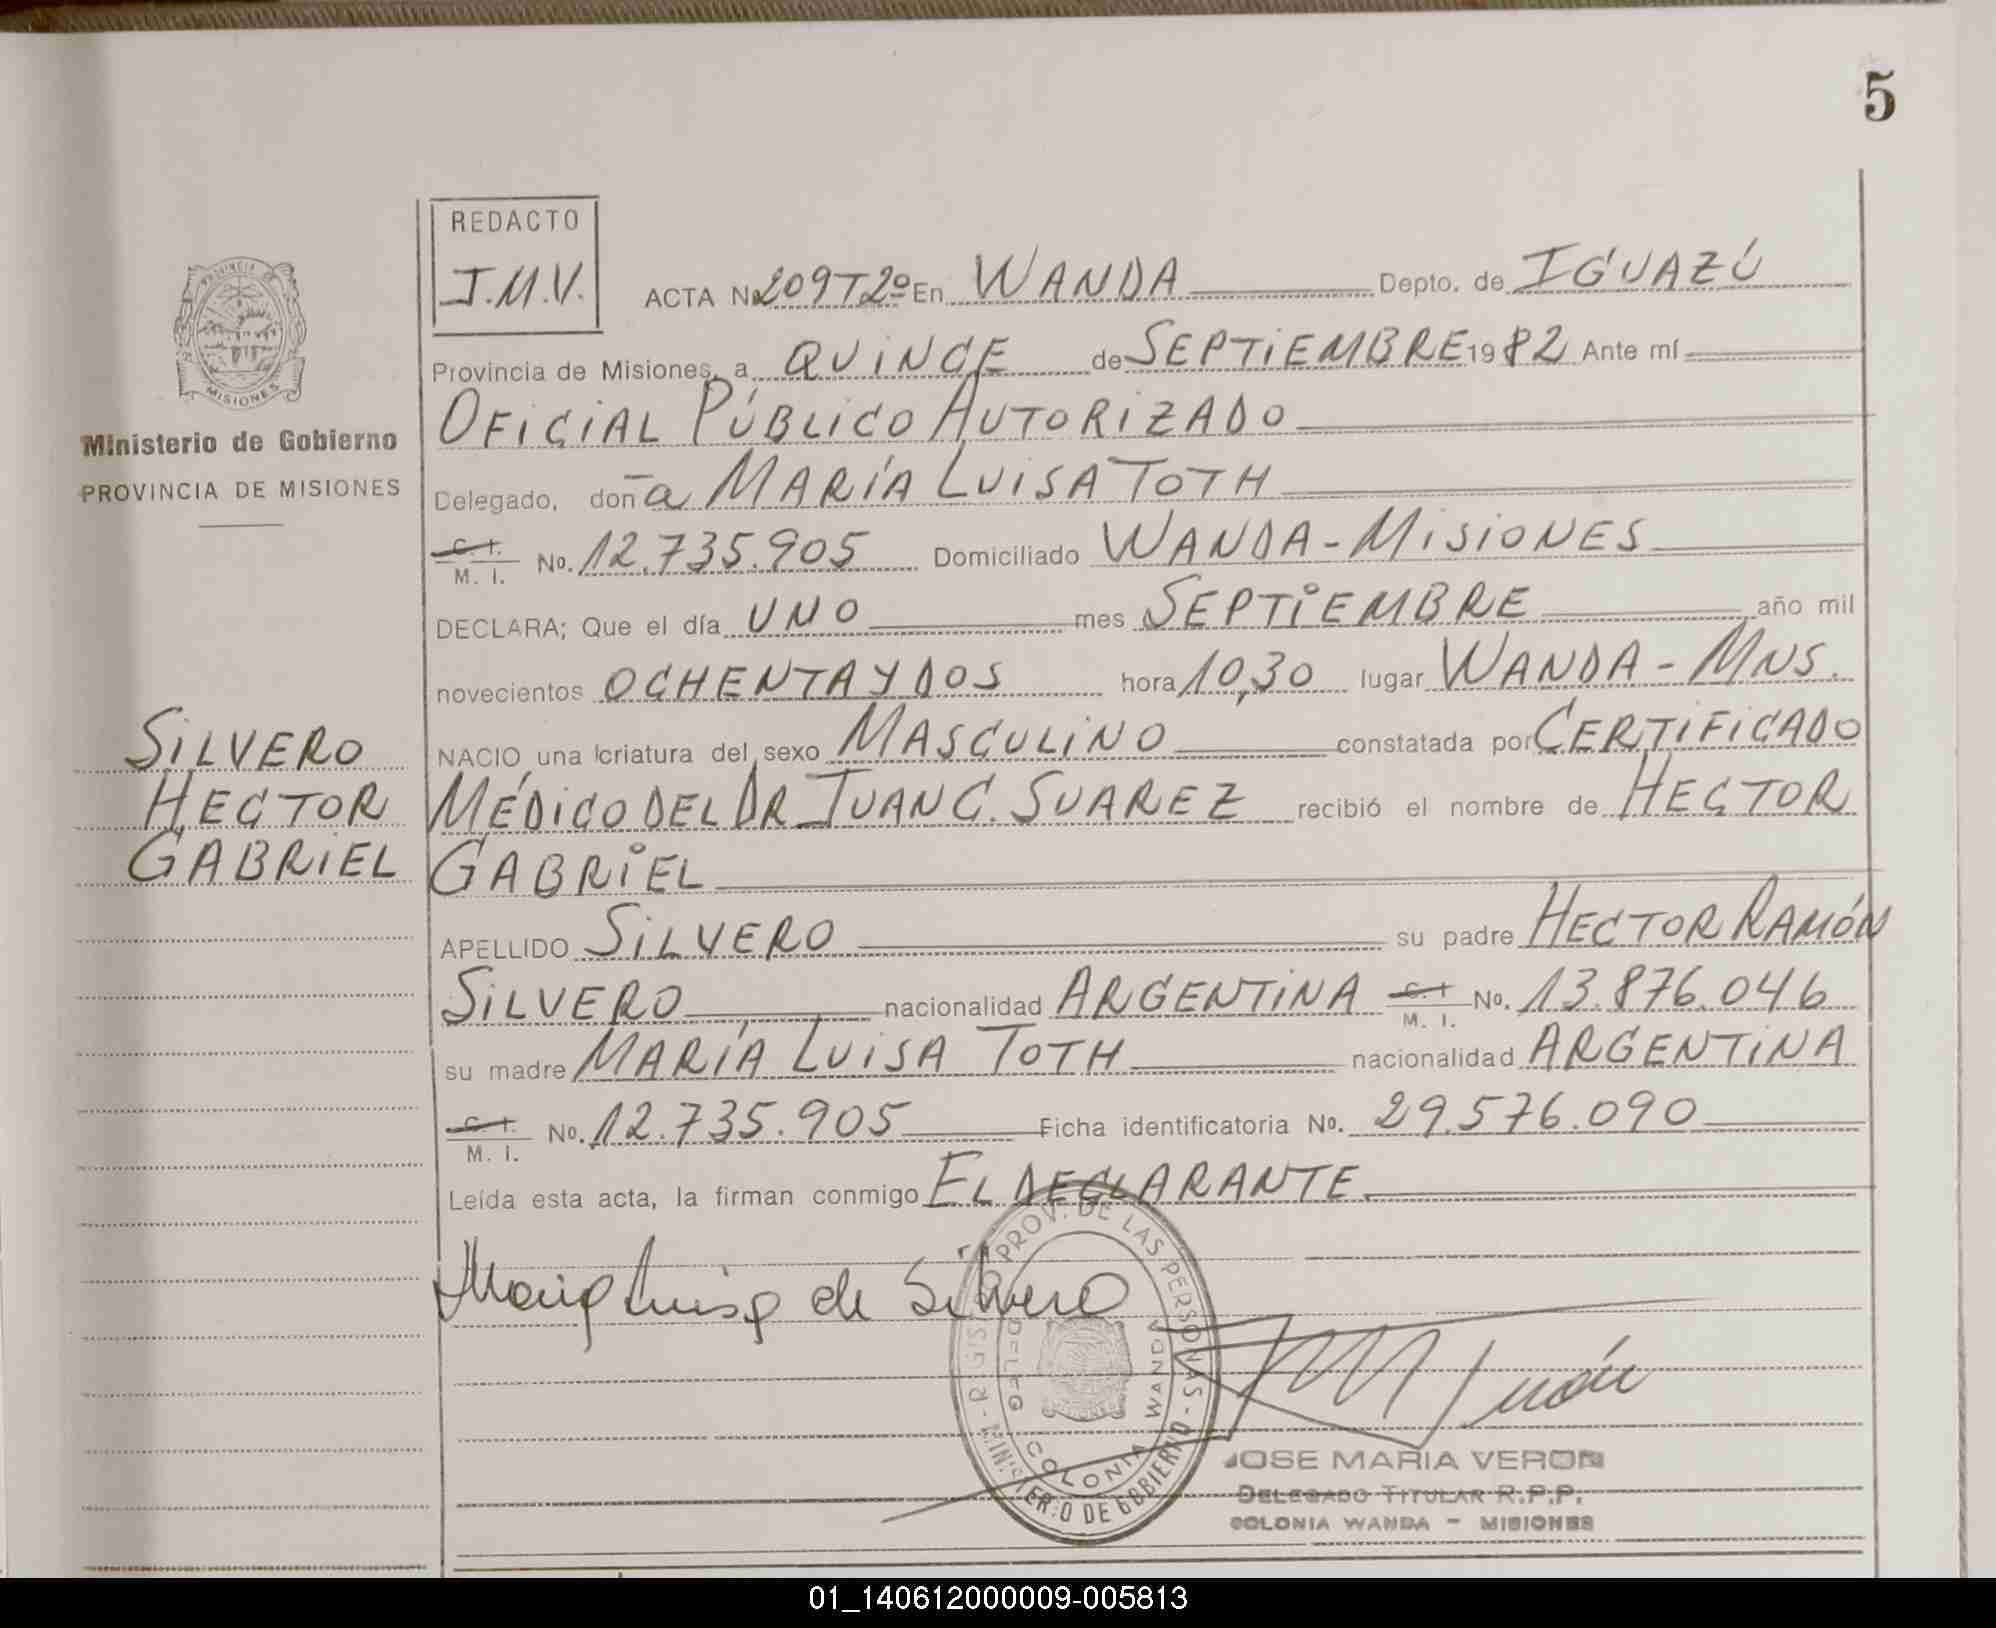 5
REDACTO
J.M.V.
ACTA No 209T2º En WANDA Depto. de IGUAZÚ
Provincia de Misiones, a QUINCE de SEPTIEMBRE 1982 Ante mí
OFICIAL PÚBLICO AUTORIZADO
Delegado, doña MARÍA LUISA TOTH
C. I.
M. I. No. 12.735.905 Domiciliado WANDA - MISIONES
DECLARA; Que el día UNO mes SEPTIEMBRE año mil
novecientos OCHENTA Y DOS hora 10,30 lugar WANDA - MNS.
NACIO una criatura del sexo MASCULINO constatada por CERTIFICADO
MÉDICO DEL DR JUAN C. SUAREZ recibió el nombre de HECTOR
GABRIEL
APELLIDO SILVERO su padre HECTOR RAMÓN
SILVERO nacionalidad ARGENTINA C. I. M. I. No. 13.876.046
su madre MARÍA LUISA TOTH nacionalidad ARGENTINA
C. I.
M. I. No. 12.735.905 Ficha identificatoria No. 29.576.090
Leída esta acta, la firman conmigo EL DECLARANTE
PROVINCIA DE
MISIONES
Ministerio de Gobierno
PROVINCIA DE MISIONES
SILVERO
HECTOR
GABRIEL
Maria Luisa de Silvero
PROV. DE LAS PERSONAS - MINISTERIO DE GOBIERNO -
COLONIA WANDA
JOSE MARIA VERON
DELEGADO TITULAR R.P.P.
COLONIA WANDA - MISIONES
01_140612000009-005813